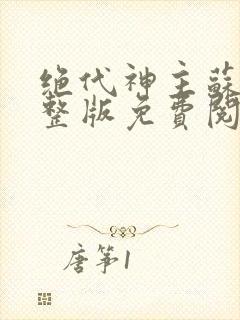 绝代神主蘇
整版免費閱
唐筝1